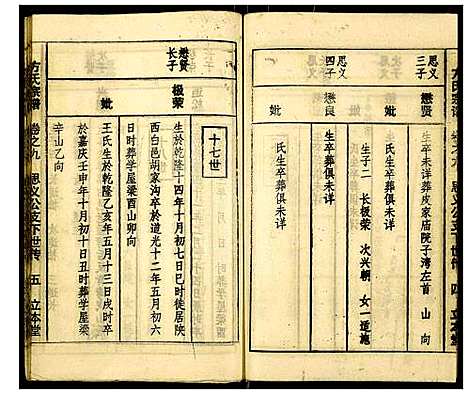 思义
三子
懋贤
生卒未详葬皮家庙院子湾左首 山 向
生子二 长极荣 次兴朝 女一适施
妣
氏生卒葬俱未详
思义
四子
懋良
生卒葬俱未详
妣
氏生卒葬俱未详
十七世
懋贤
长子
极荣
生於乾隆十四年十月初七日巳时徙居陕
西白邑胡家沟卒於道光十二年五月初六
日时葬学屋梁酉山卯向
妣
王氏生於乾隆乙亥年五月十三日戌时卒
於嘉庆壬申年十月初十日丑时葬学屋梁
辛山乙向
方氏宗谱 卷之九 思义公支下世传 五 立本堂